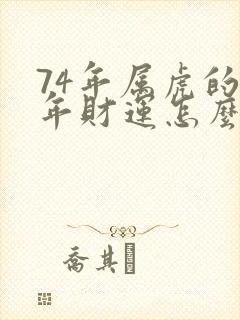 74年属虎的
年财运怎麼
喬其